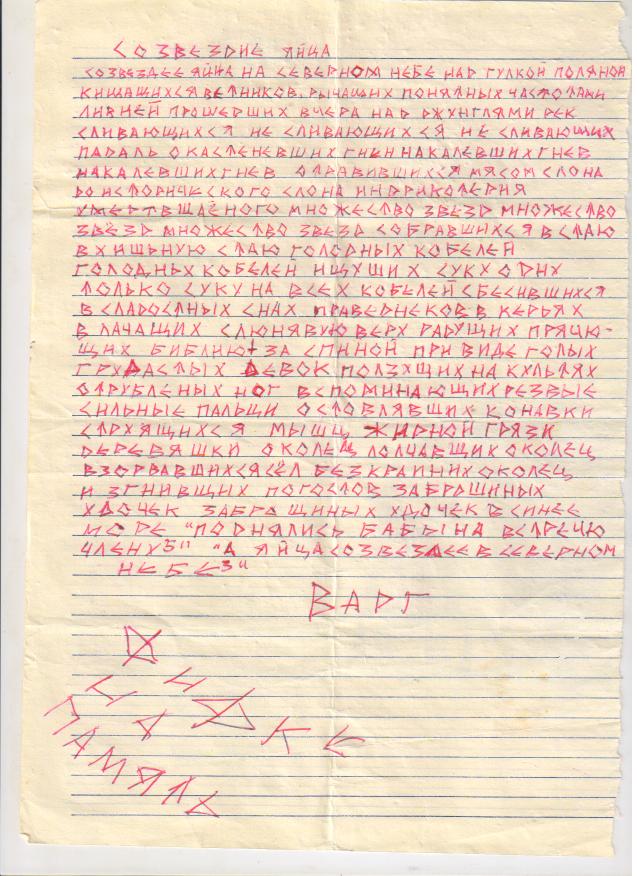 СОЗВЕЗДИЕ ЯЙЦА
СОЗВЕЗДЕЕ ЯЙЦА НА СЕВЕРНОМ НЕБЕ НАД ГУЛКОЙ ПОЛЯНОЙ
КИЩАЩИХСЯ ВЕТНИКОВ, РЫЧАЩИХ ПОНЯТНЫХ ЧАСТОТАМИ
ЛИВНЕЙ ПРОШЕРШИХ ВЧЕРА НАД ДЖУНГЛЯМИ РЕК
СЛИВАЮЩИХСЯ НЕ СЛИВАЮЩИХСЯ НЕ СЛИВАЮЩИХ
ПАДАЛЬ ОКАСТЕНЕВШИХ ГИЕН НАКАЛЕВШИХ ГНЕВ
НАКАЛЕВШИХ ГНЕВ ОТРАВИВШИХСЯ МЯСОМ СЛОНА
ДОИСТОРИЧЕСКОГО СЛОНА ИНДРИКОТЕРИЯ
УМЕРТВЩЛЁНОГО МНОЖЕСТВО ЗВЕЗД МНОЖЕСТВО
ЗВЁЗД МНОЖЕСТВО ЗВЕЗД СОБРАВШИХСЯ В СТАЮ
В ХИЩЬНУЮ СТАЮ ГОЛОДНЫХ КОБЕЛЕЙ
ГОЛОДНЫХ КОБЕЛЕН ИЩУЩИХ СУКУ ОДНУ
ТОЛЬКО СУКУ НА ВСЕХ КОБЕЛЕЙ СБЕСИВШИХСЯ
В СЛАДОСТНЫХ СНАХ ПРАВЕДНЕКОВ В КЕРЬЯХ
ВЛАЧАЩИХ СЛЮНЯВУЮ ВЕРУ РАДУЩИХ ПРЯЧЮ-
ЩИХ БИБЛИЮ† ЗА СПИНОЙ ПРИ ВИДЕ ГОЛЫХ
ГРУДАСТЫХ ДЕВОК ПОЛЗУЩИХ НА КУЛЬТЯХ
ОТРУБЛЕНЫХ НОГ ВСПОМИНАЮЩИХ РЕЗВЫЕ
СИЛЬНЫЕ ПАЛЬЦИ ОСТОВЛЯВШИХ КОНАВКИ
СТРУЯЩИХСЯ МЫШЦ ЖИРНОЙ ГРЯЗИ
ДЕРЕВЯШКИ ОКОЛЕЦ ПОЛЧАВЩИХ ОКОЛЕЦ
ВЗОРВАВШИХСЯ СЁЛ БЕЗ КРАИНИХ ОКОЛЕЦ
И ЗГНИВЩИХ ПОГОСТОВ ЗАБРОШИНЫХ
УДОЧЕК ЗАБРОЩИНЫХ УДОЧЕК В СИНЕЕ
МОРЕ "ПОДНЯЛИСЬ БАБЫ НА ВСТРЕЧЮ
ЧЛЕНУ5" "А ЯЙЦА СОЗВЕЗДЕЕ В СЕВЕРНОМ
НЕБЕ3"
ВАРГ
НА
ПАМЯТЬ